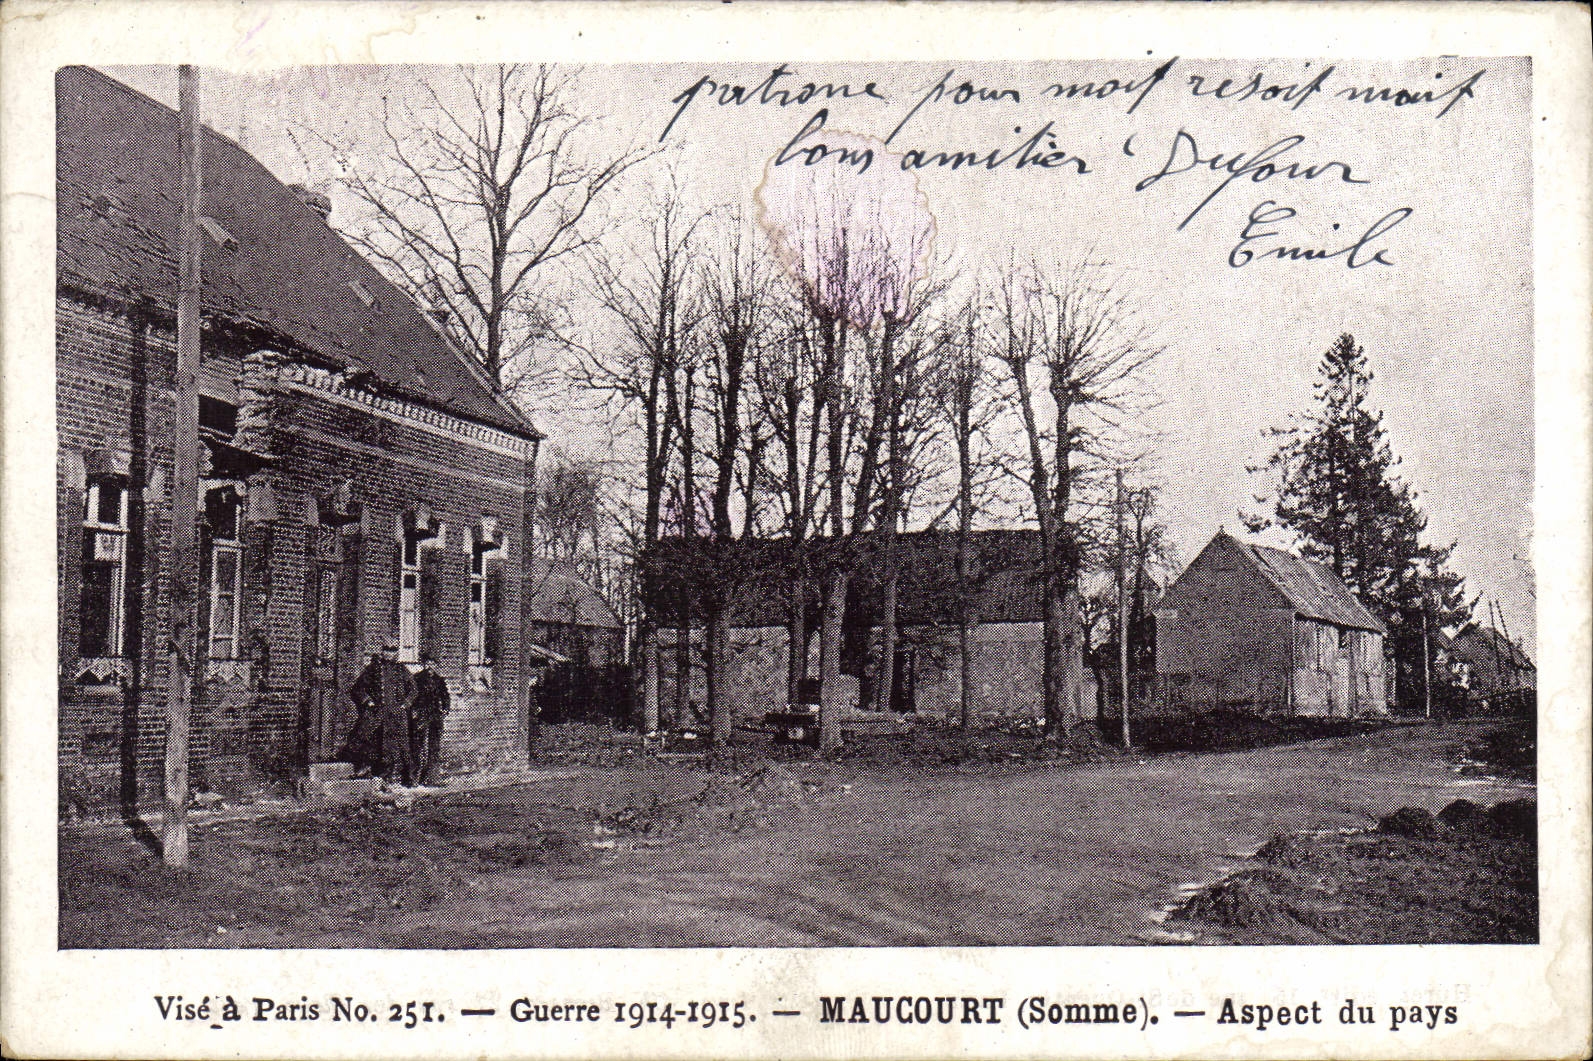 patrone pour moif resoif maif
bons amitier Dufour
Emile
Visé à Paris No. 251. — Guerre 1914-1915. — MAUCOURT (Somme). — Aspect du pays